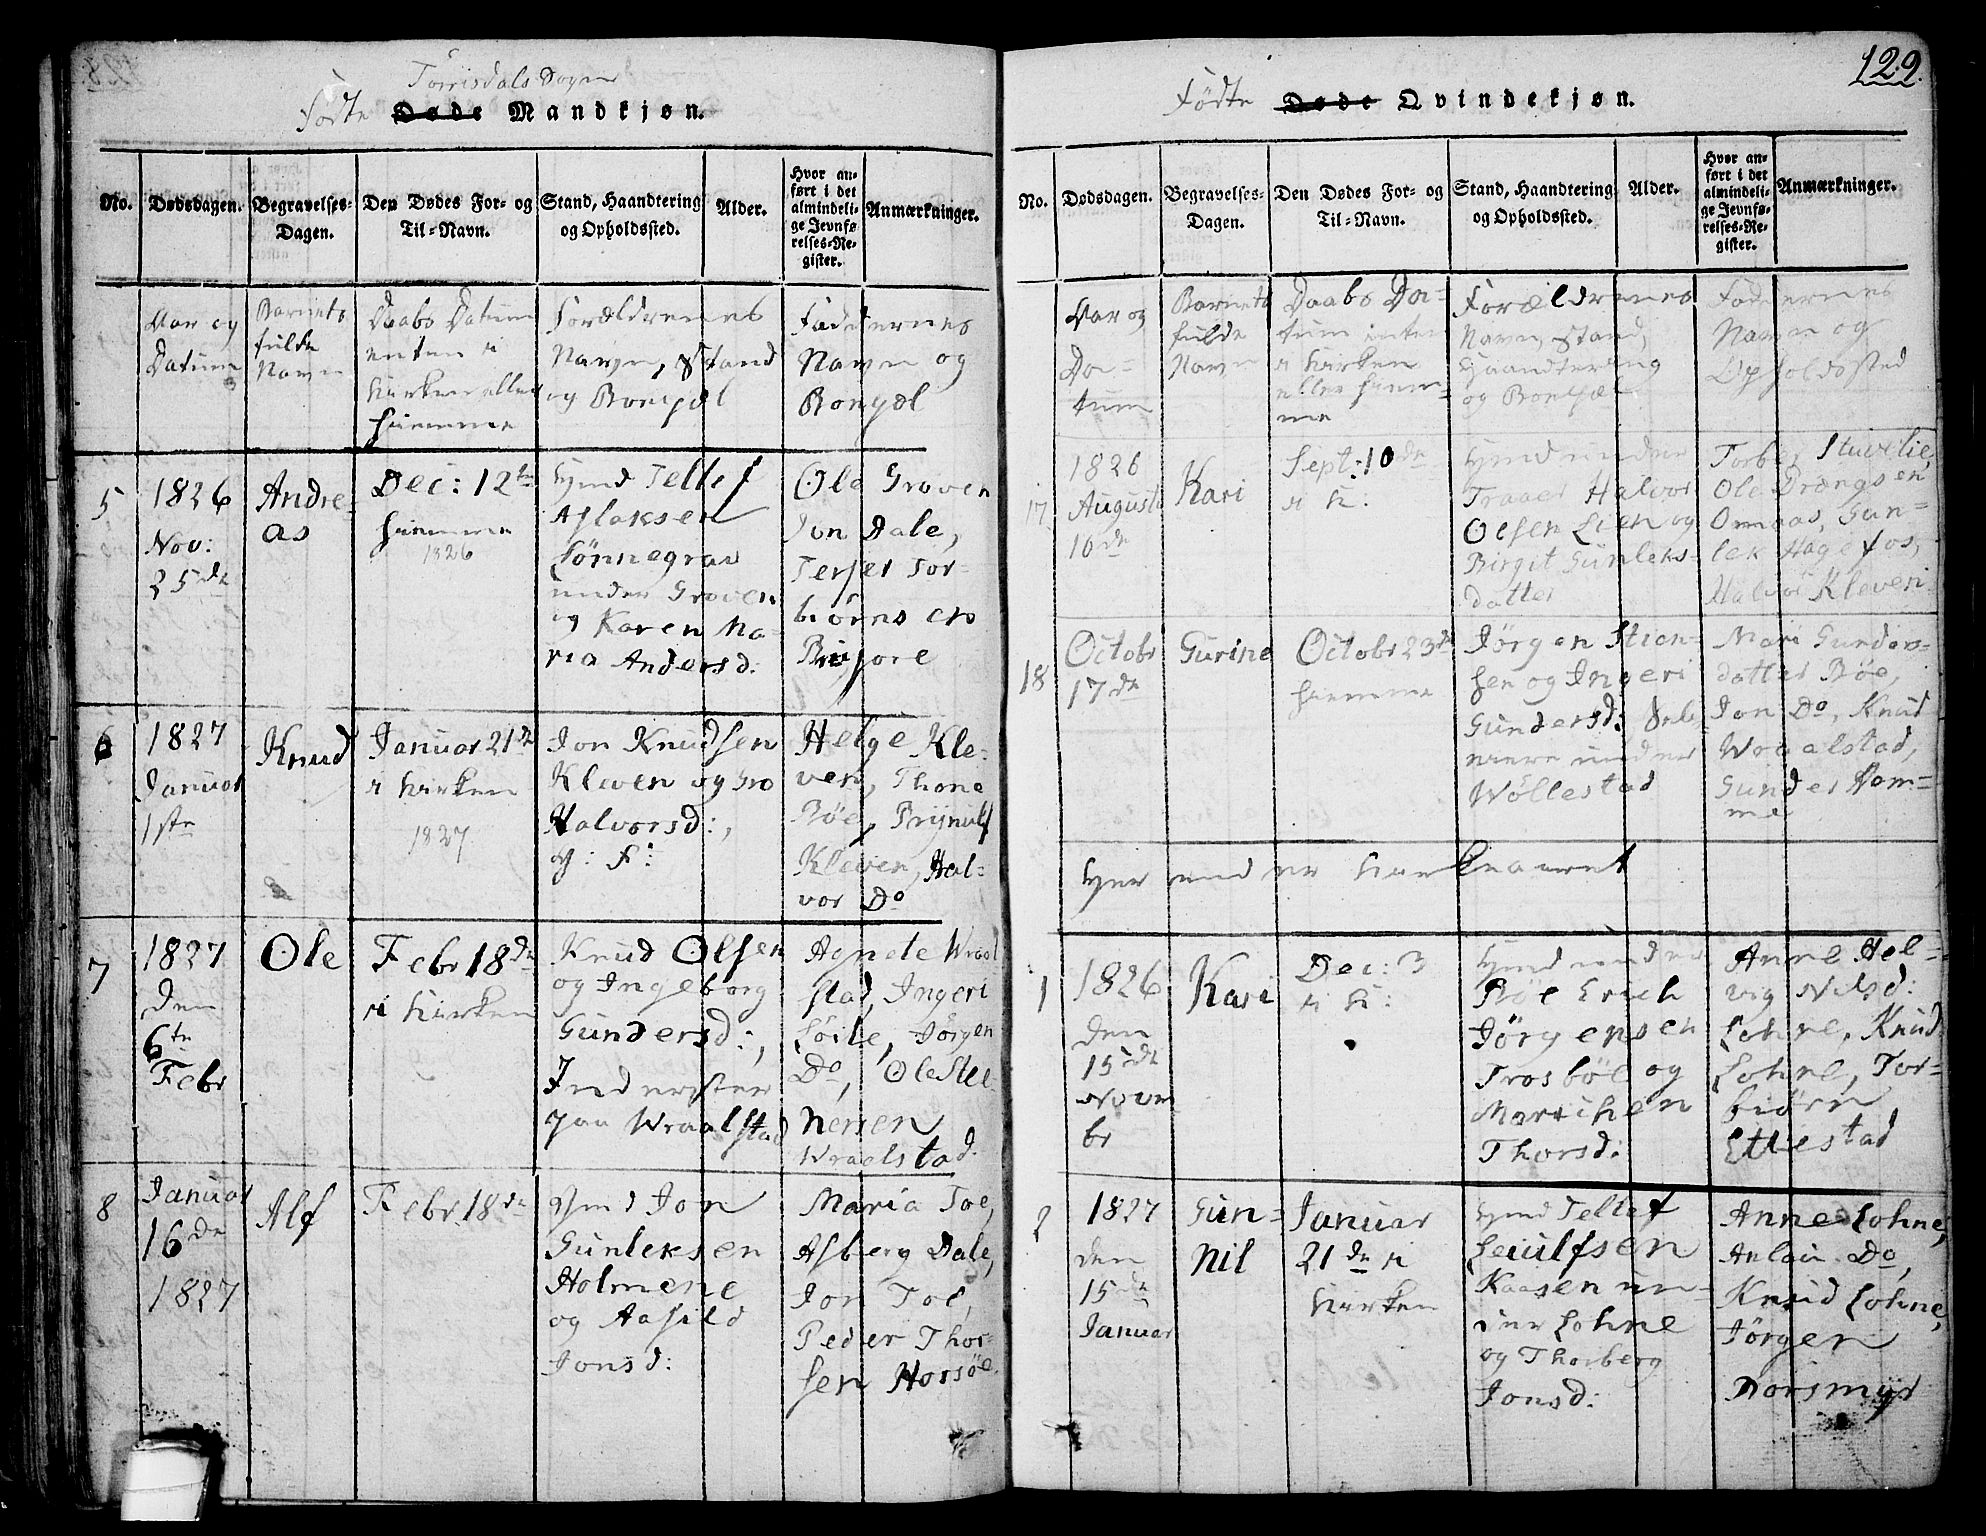 Törrisdals Sogn
Födte Døde Mandkjøn.
No.
Dødsdagen.
Begravelses-
Dagen.
Den Dødes For- og
Til-Navn.
Stand, Haandtering
og Opholdssted.
Alder.
Hvor an-
ført i det
almindeli-
ge Jevnfø-
relses-Re-
gister.
Anmærkninger.
Aar og
Datum
Barnets
fulde
Navn
Daabs Datum
enten i
Kirken eller
hiemme
Forældrenes
Navn, Stand
og Bopæl
Faddernes
Navn og
Bopæl
5
1826
Nov:
25de
Andre-
as
Dec: 12te
hiemme
1826
Hmd Tellef
Aslaksen
Lönnegrav
under Groven
og Karen Ma-
ria Andersd:
Ole Groven
Jon Dale,
Terjer Tor-
biörnsen
6
1827
Januar
1ste
Knud
Januar 21de
i Kirken
1827
Jon Knudsen
Kleven og Gro
Halvorsd:,
g: F:
Helge Kle-
ven, Thone
Böe, Brynulf
Kleven, Hal-
vor Do
7
1827
den
6te
Febr
Ole
Febr 18de
i Kirken
Knud Olsen
og Ingeborg
Gundersd:,
Inderster
paa Wraalstad
Agnete Wraal
stad, Ingeri
Löite, Jörgen
Do, Ole Stee-
nersen
Wraalstad
8
Januar
16de
1827
Alf
Febr. 18de
Hmd Jon
Gunleksen
Holmene
og Aasild
Jonsd:
Maria Toe,
Asberg Dale,
Jon Toe,
Peder Thor-
sen Horsöe
129.
Födte Døde Qvindekjøn.
No.
Dødsdagen.
Begravelses-
Dagen.
Den Dødes For- og
Til-Navn.
Stand, Haandtering
og Opholdssted.
Alder.
Hvor an-
ført i det
almindeli-
ge Jevnfø-
relses-Re-
gister.
Anmærkninger.
Aar og
Da-
tum
Barnets
fulde
Navn
Daabs Da-
tum enten
i Kirken
eller hiem-
me
Forældrenes
Navn, Stand,
Haandtering
og Bopæl
Faddernes
Navn og
Opholdssted
17
1826
Augusti
10de
Kari
Sept: 10de
i K:
Hmd under
Traaer Halvor
Olsen Lien og
Birgit Gunleks-
datter
Torb. Stuvelie,
Ole Drengsen
Omaas, Gun-
lek Hagefos,
Halvor Kleveri
18
Octobr
17de
Gurine
Octobr 23de
hiemme
Jörgen Stien-
sen og Ingeri
Gundersd:
under
Wöllestad
Mari Gunders-
datter Böe,
Jon Do, Knud
Wraalstad,
Gunder Hom-
me
Her under
1
1826
den
15de
Novem
br
Kari
Dec: 3
i K:
Hmd under
Böe Erich
Jörgensen
Trosböe og
Marichen
Thorsd:
Anne Hel-
vig Nilsd:
Lohne, Knud
Lohne, Tor-
biörn
Ettestad
2
1827
den
15de
Januar
Gun-
nil
Januar
21de i
Kirken
Hmd Tellef
Leiulfsen
Kaasen un-
der Lohne
og Thorberg
Jonsd:
Anne Lohne,
Anlau Do,
Knud Lohne,
Jörgen
Dorsmyr